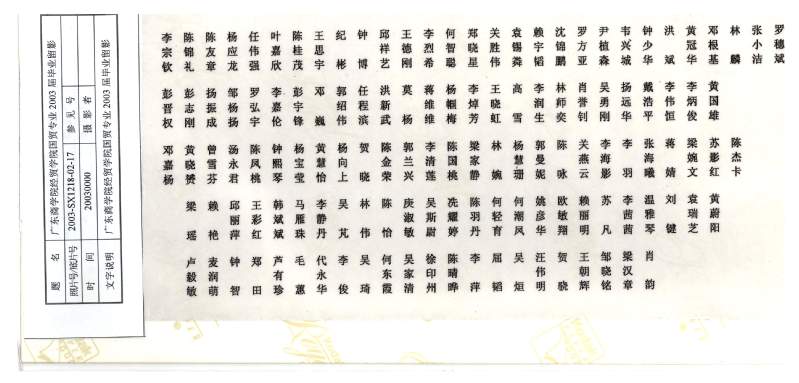 题 名 广东商学院经贸学院国贸专业2003届毕业留影
照片号/底片号 2003-SX1218-02-17 参见号
时 间 20030000 摄影者
文字说明 广东商学院经贸学院国贸专业2003届毕业留影
李宗钦 陈锦礼 陈友章 杨应龙 任伟强 叶嘉欣 陈桂茂 王思宇 纪彬 钟博 邱祥艺 王德刚 李烈希 何智聪 郑晓星 关胜伟 袁锡粦 赖宇韬 沈锦鹏 罗方亚 尹植森 韦兴城 钟少华 洪斌 黄冠华 邓根基 林麟 张小洁 罗穗斌
彭晋权 彭志刚 扬振成 邹杨扬 罗弘宇 李嘉伦 彭宇锋 邓巍 郭绍伟 任程滨 洪新武 莫杨 蒋维维 杨帼梅 李焯芳 王晓虹 高雪 李润生 林师奕 肖誉钊 吴勇刚 扬远华 戴浩平 李伟恒 李炳俊 黄国雄
邓嘉杨 黄晓赞 曾雪芬 汤永君 陈凤桃 钟熙琴 杨宝莹 黄慧怡 杨向上 贺晓 陈金荣 郭兰兴 李清莲 陈国桃 梁家静 林婉 杨慧珊 郭曼妮 陈咏 关燕云 李海影 李羽 张海曦 蒋婧 梁婉文 苏影红 陈杰卡
梁瑶 赖艳 邱丽萍 王彩红 韩斌斌 马雁珠 李静丹 吴芃 林伟 陈怡 庚淑敏 吴斯尉 冼耀婷 陈羽丹 何轻育 何潮凤 姚彦华 欧敏翔 赖丽明 苏凡 李茜茜 温雅琴 刘键 袁瑞芝 黄蔚阳
卢毅敏 麦润萌 钟智 郑田 芦有珍 毛蕙 代永华 李俊 吴琦 何东霞 吴家清 徐印州 陈晴晔 李萍 屈韬 吴烜 汪伟明 贺晓 王朝辉 邹晓铭 梁汉章 肖韵